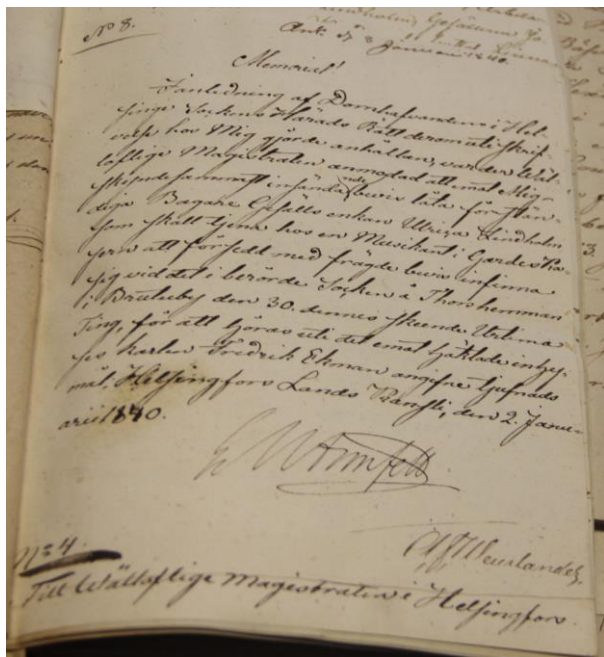 N:o 8.
Ank. d. 8 Januari 1840.
Memorial!
I anledning af Domhafvanden i Hel-
singe Sockens Härads Rätt derom uti skrif-
velse hos Mig gjorde anhållan, warder Wäl-
loflige Magistraten anmodad att emot Mig
skeende sammast insända bevis låta för
diga Bagare Gesälls enkan Ulrica Lindholm
som skall tjena hos en Musikant i Gardes
att försedd med frägde bevis infinna
sig vid det i berörde Socken å Thors hemman
i Bruteby den 30. dennes skeende Urtima
Ting, för att höras uti det emot häktade inhy-
ses karlen Fredrik Ekman angifne tjufnads
mål. Helsingfors Lands Canslie, den 2. Janu-
arii 1840.
Armfelt
N:o 4.
Till Wälloflige Magistraten i Helsingfors.